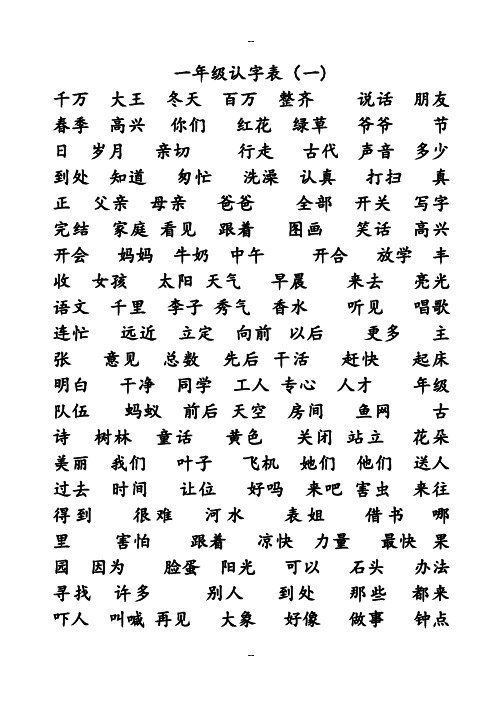 --
一年级认字表（一）
千万 大王 冬天 百万 整齐 说话 朋友
春季 高兴 你们 红花 绿草 爷爷 节
日 岁月 亲切 行走 古代 声音 多少
到处 知道 匆忙 洗澡 认真 打扫 真
正 父亲 母亲 爸爸 全部 开关 写字
完结 家庭 看见 跟着 图画 笑话 高兴
开会 妈妈 牛奶 中午 开合 放学 丰
收 女孩 太阳 天气 早晨 来去 亮光
语文 千里 李子 秀气 香水 听见 唱歌
连忙 远近 立定 向前 以后 更多 主
张 意见 总数 先后 干活 赶快 起床
明白 干净 同学 工人 专心 人才 年级
队伍 蚂蚁 前后 天空 房间 鱼网 古
诗 树林 童话 黄色 关闭 站立 花朵
美丽 我们 叶子 飞机 她们 他们 送人
过去 时间 让位 好吗 来吧 害虫 来往
得到 很难 河水 表姐 借书 哪
里 害怕 跟着 凉快 力量 最快 果
园 因为 脸蛋 阳光 可以 石头 办法
寻找 许多 别人 到处 那些 都来
吓人 叫喊 再见 大象 好像 做事 钟点
--